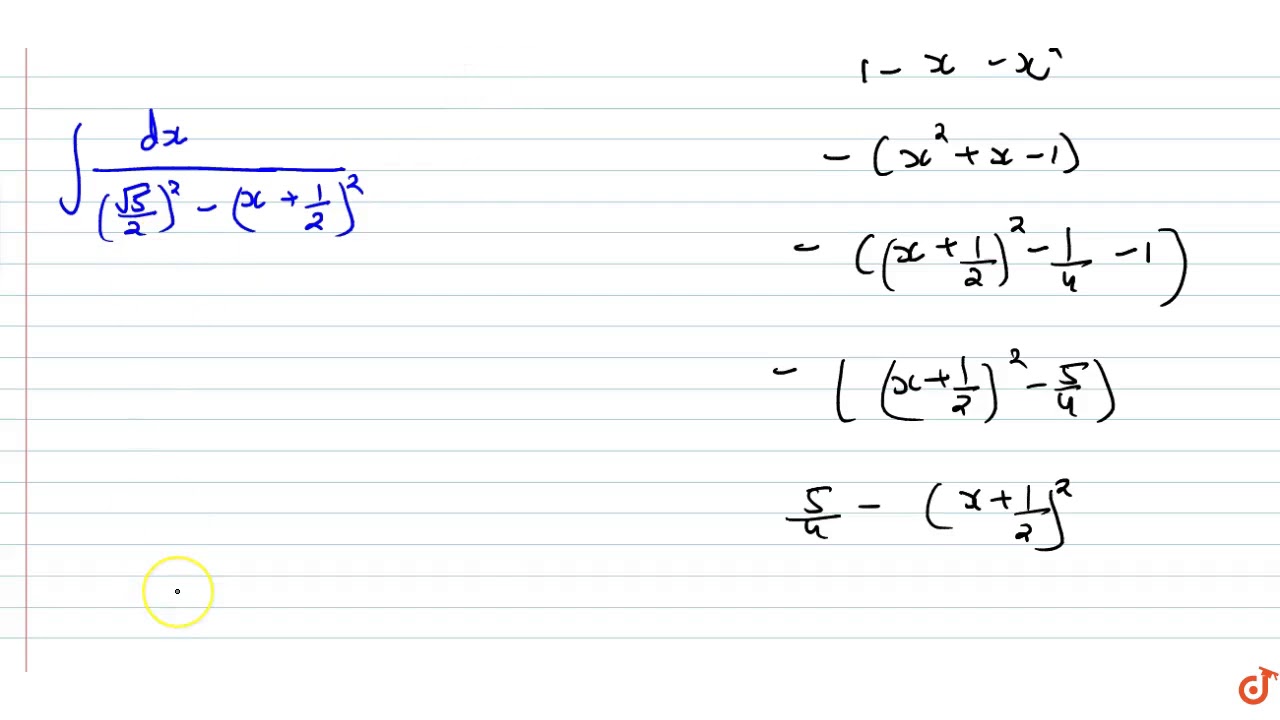 ∫ dx / ((√5/2)² - (x + 1/2)²)
1 - x - x²
- (x² + x - 1)
- ((x + 1/2)² - 1/4 - 1)
- ((x + 1/2)² - 5/4)
5/4 - (x + 1/2)²